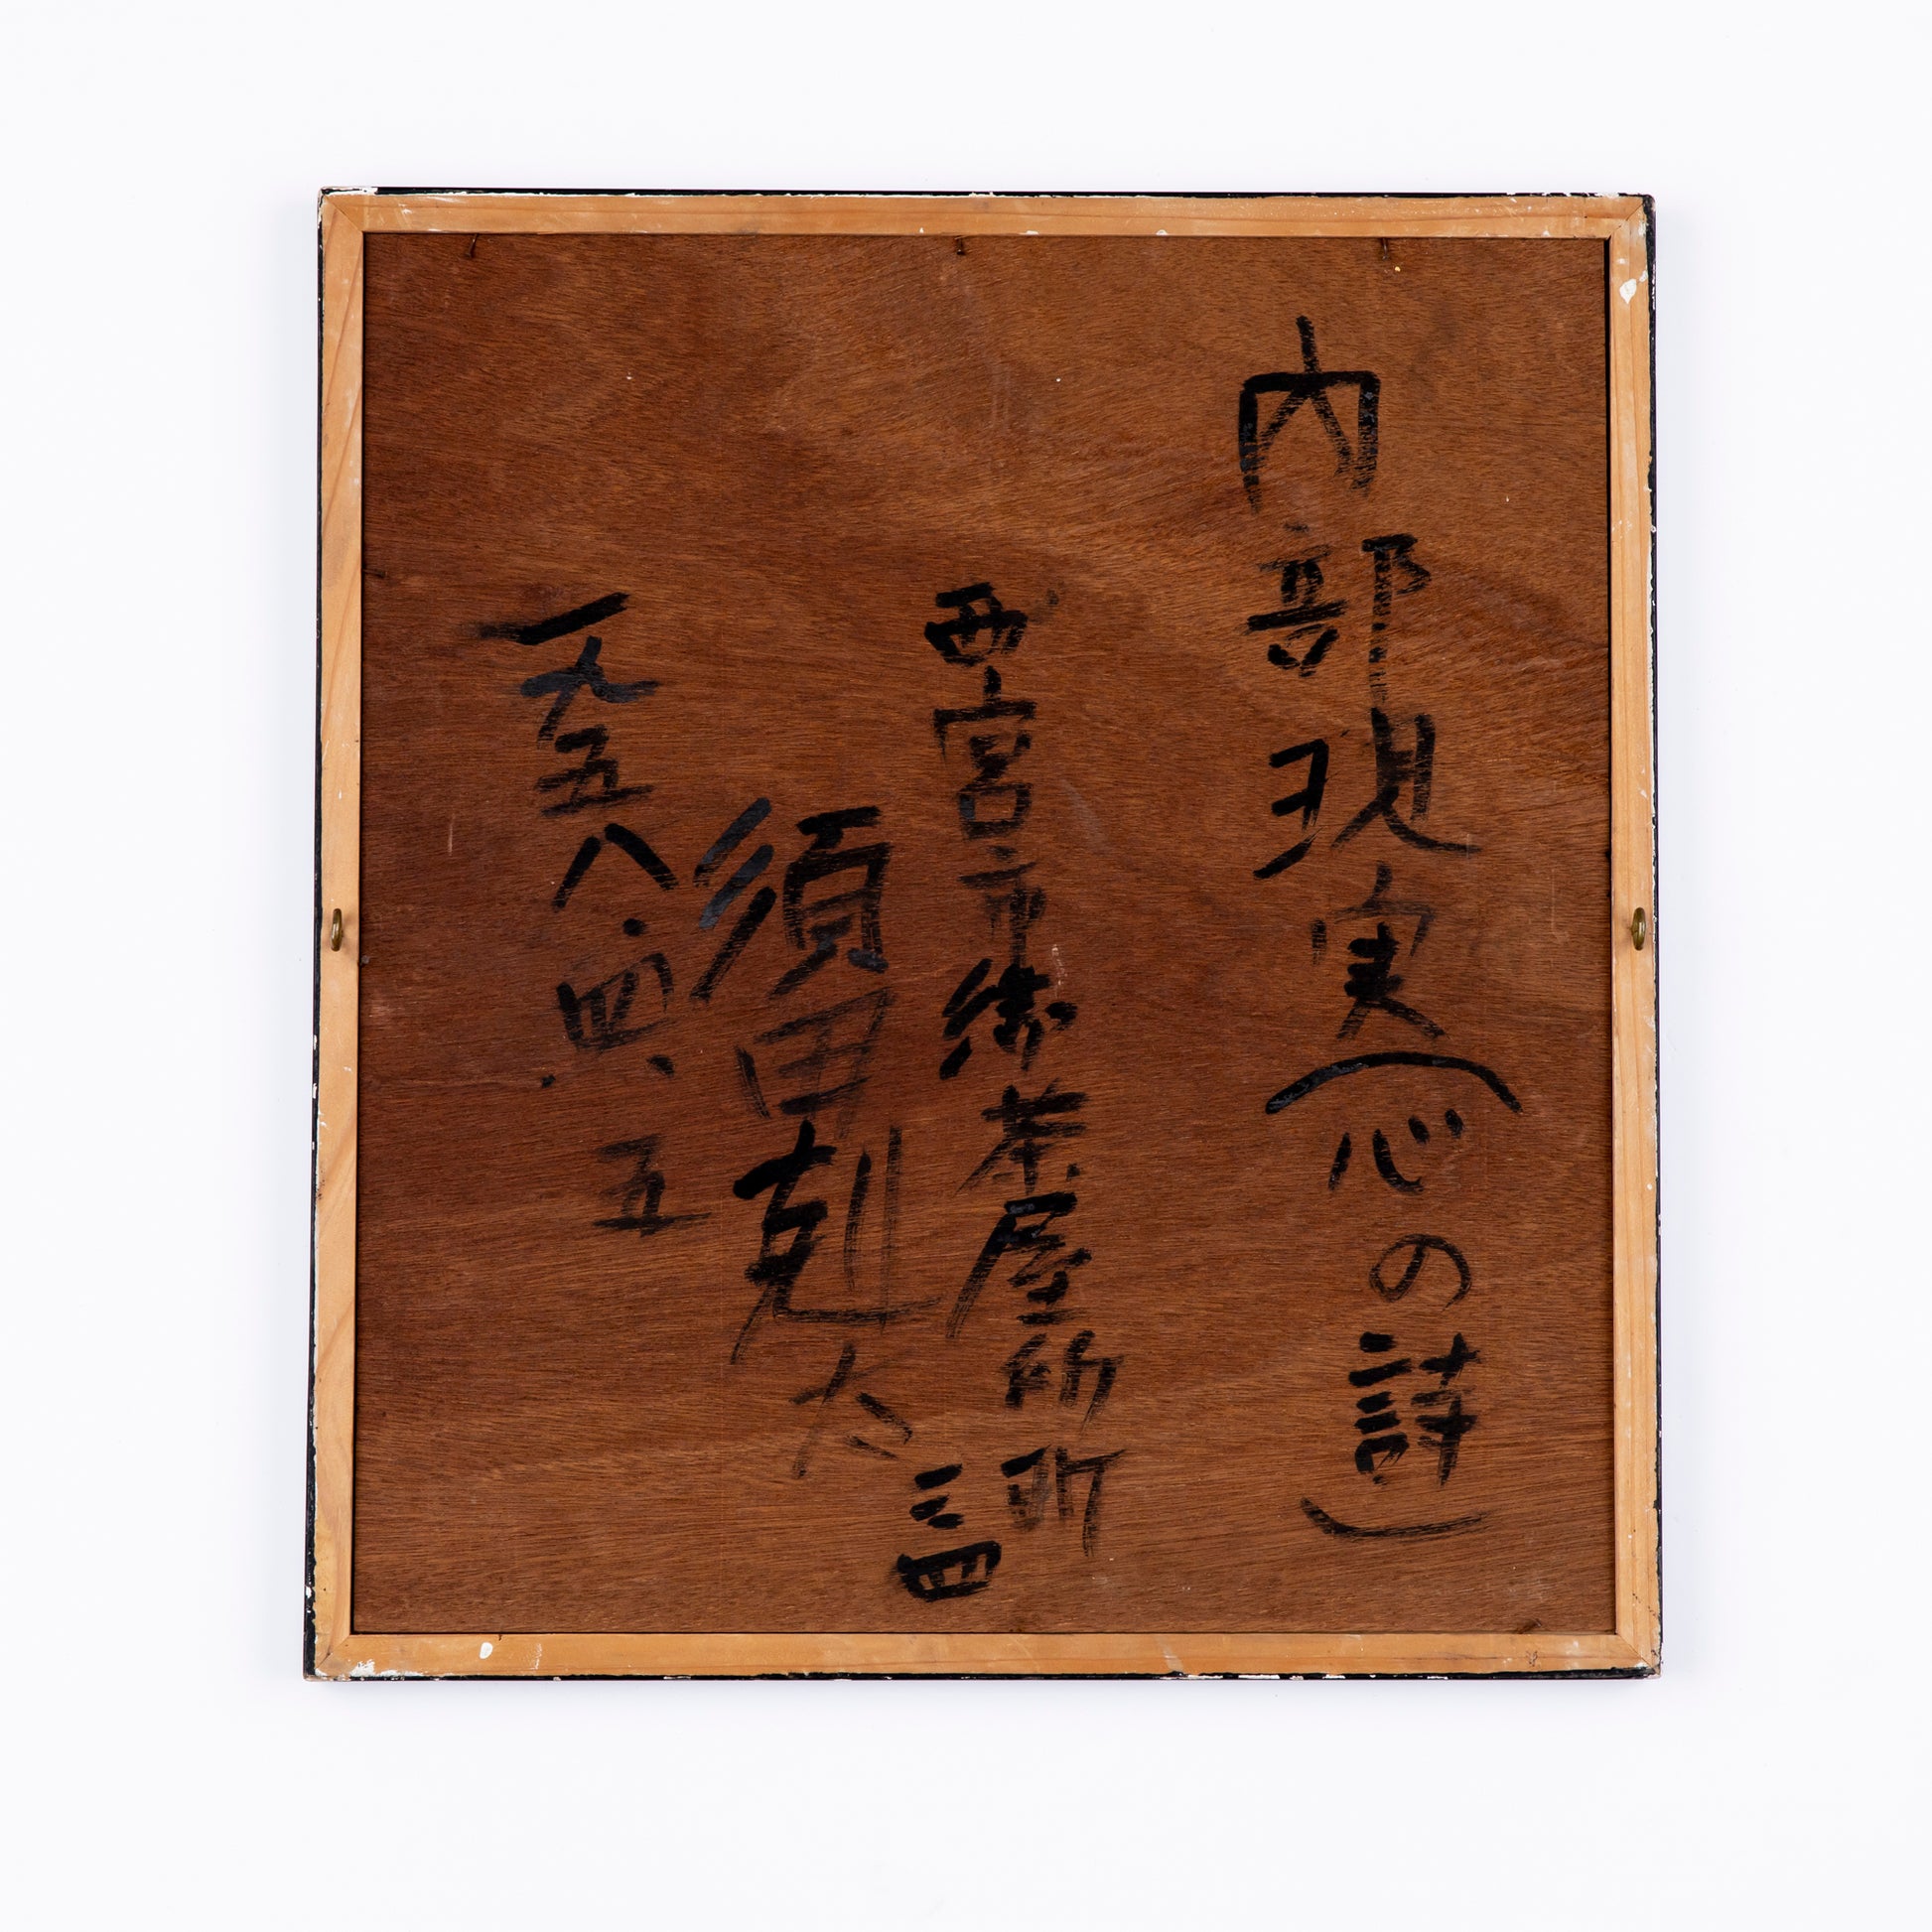 内部現実(心の詩)
西宮市御茶屋所町
三四
須田剋太
一九五八.四.五